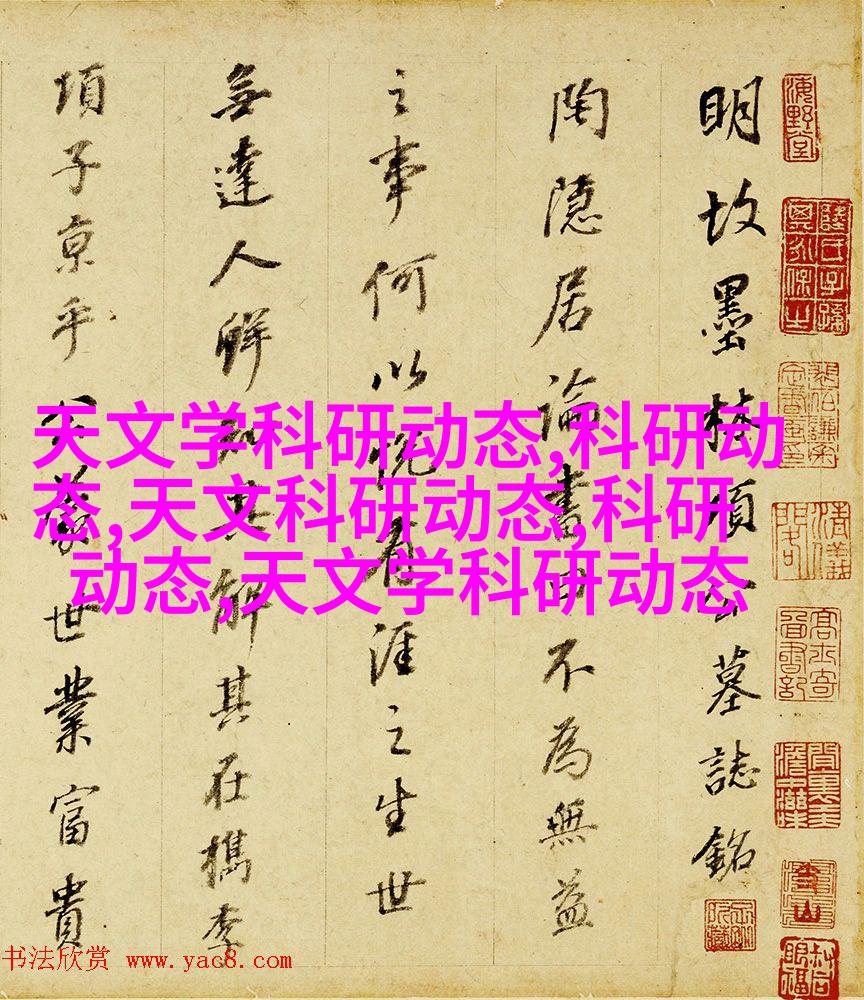 明故墨林項公墓誌銘
陶隱居論書曰不為無益
之事何以悅有涯之生世
無達人鮮知其解其在檇李
項子京乎公世業富貴
海野堂
天文学科研动态,科研动
态,天文科研动态,科研
动态,天文学科研动态
书法欣赏 www.yac8.com